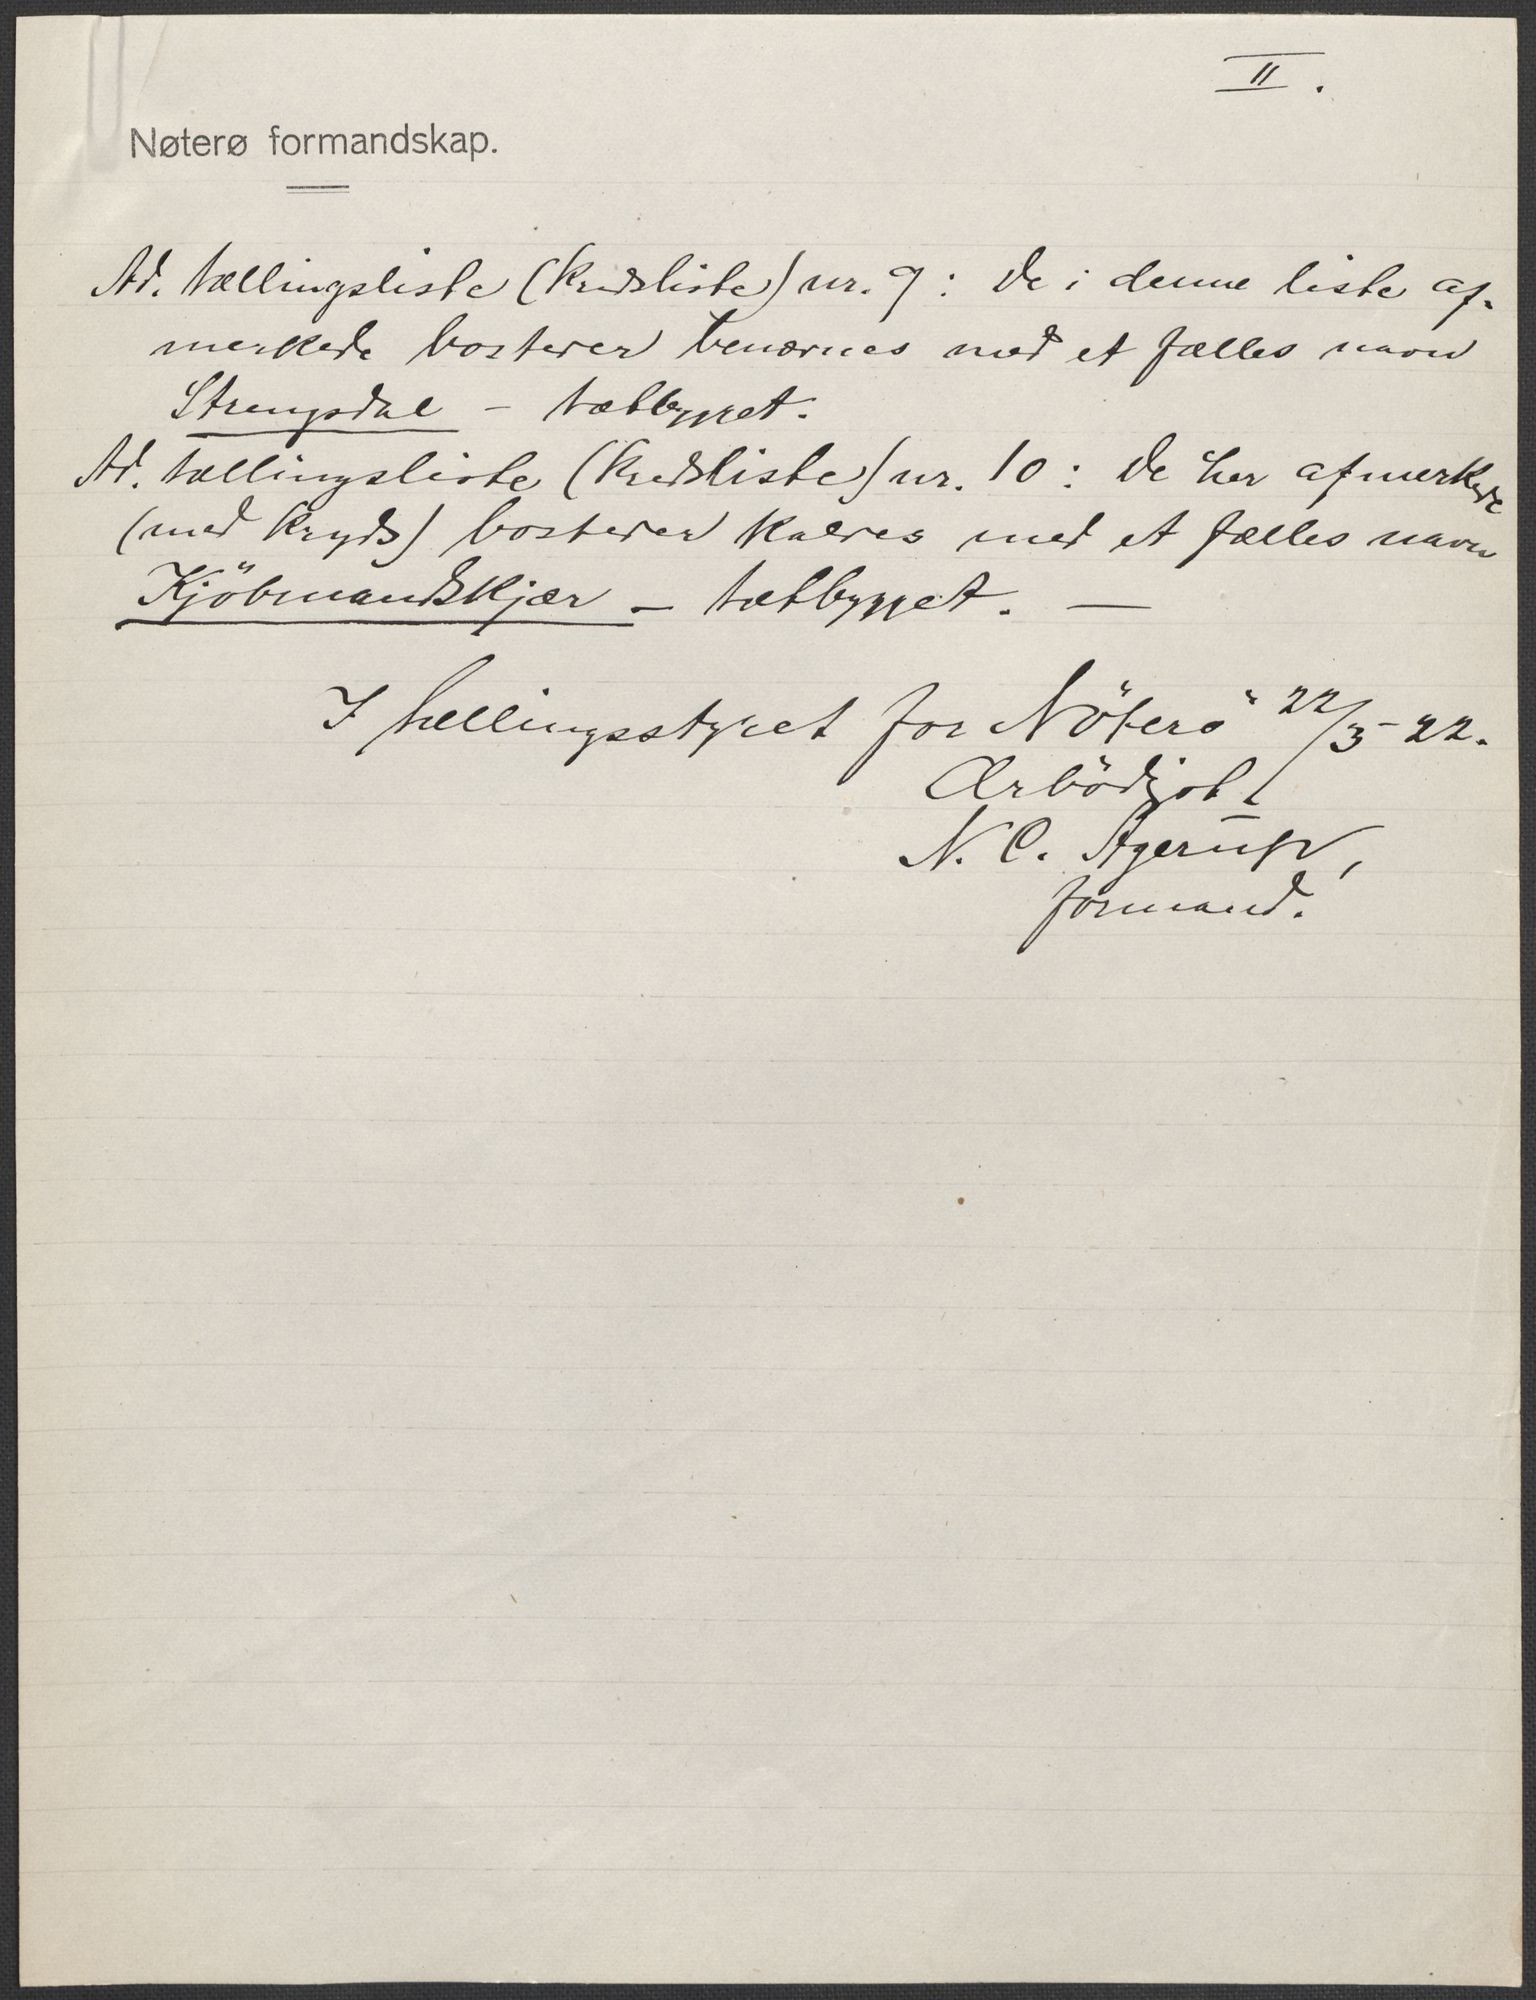 II.
Nøterø formandskap.
Ad. tællingsliste (kredsliste) nr. 9: De i denne liste af-
merkede bosteder benævnes med et fælles navn
Strengsdal – tætbygget.
Ad. tællingsliste (kredsliste) nr. 10: De her afmerkede
(med kryds) bosteder kaldes med et fælles navn
Kjöbmandskjær – tætbygget. —
I tællingsstyret for Nöterö 22/3-22.
Ærbödigst
N. C. Agerup,
formand.